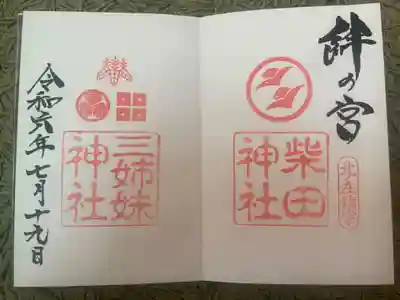 絆の宮
柴田
神社
三姉妹
神社
令和六年七月十九日